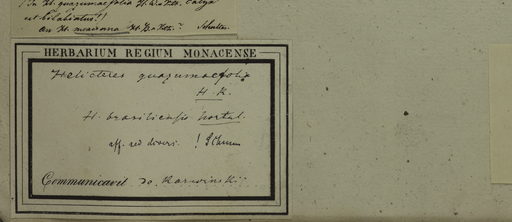 In H. guazumaefolia H. & Kth. calyx
ut bilabiatus!!
An H. H. B. & Kth.? Schultes.
HERBARIUM REGIUM MONACENSE
Helicteres guazumaefolia
H. K.
H. brasiliensis hortul.
aff. sed divers. !
Communicavit de Karwinski